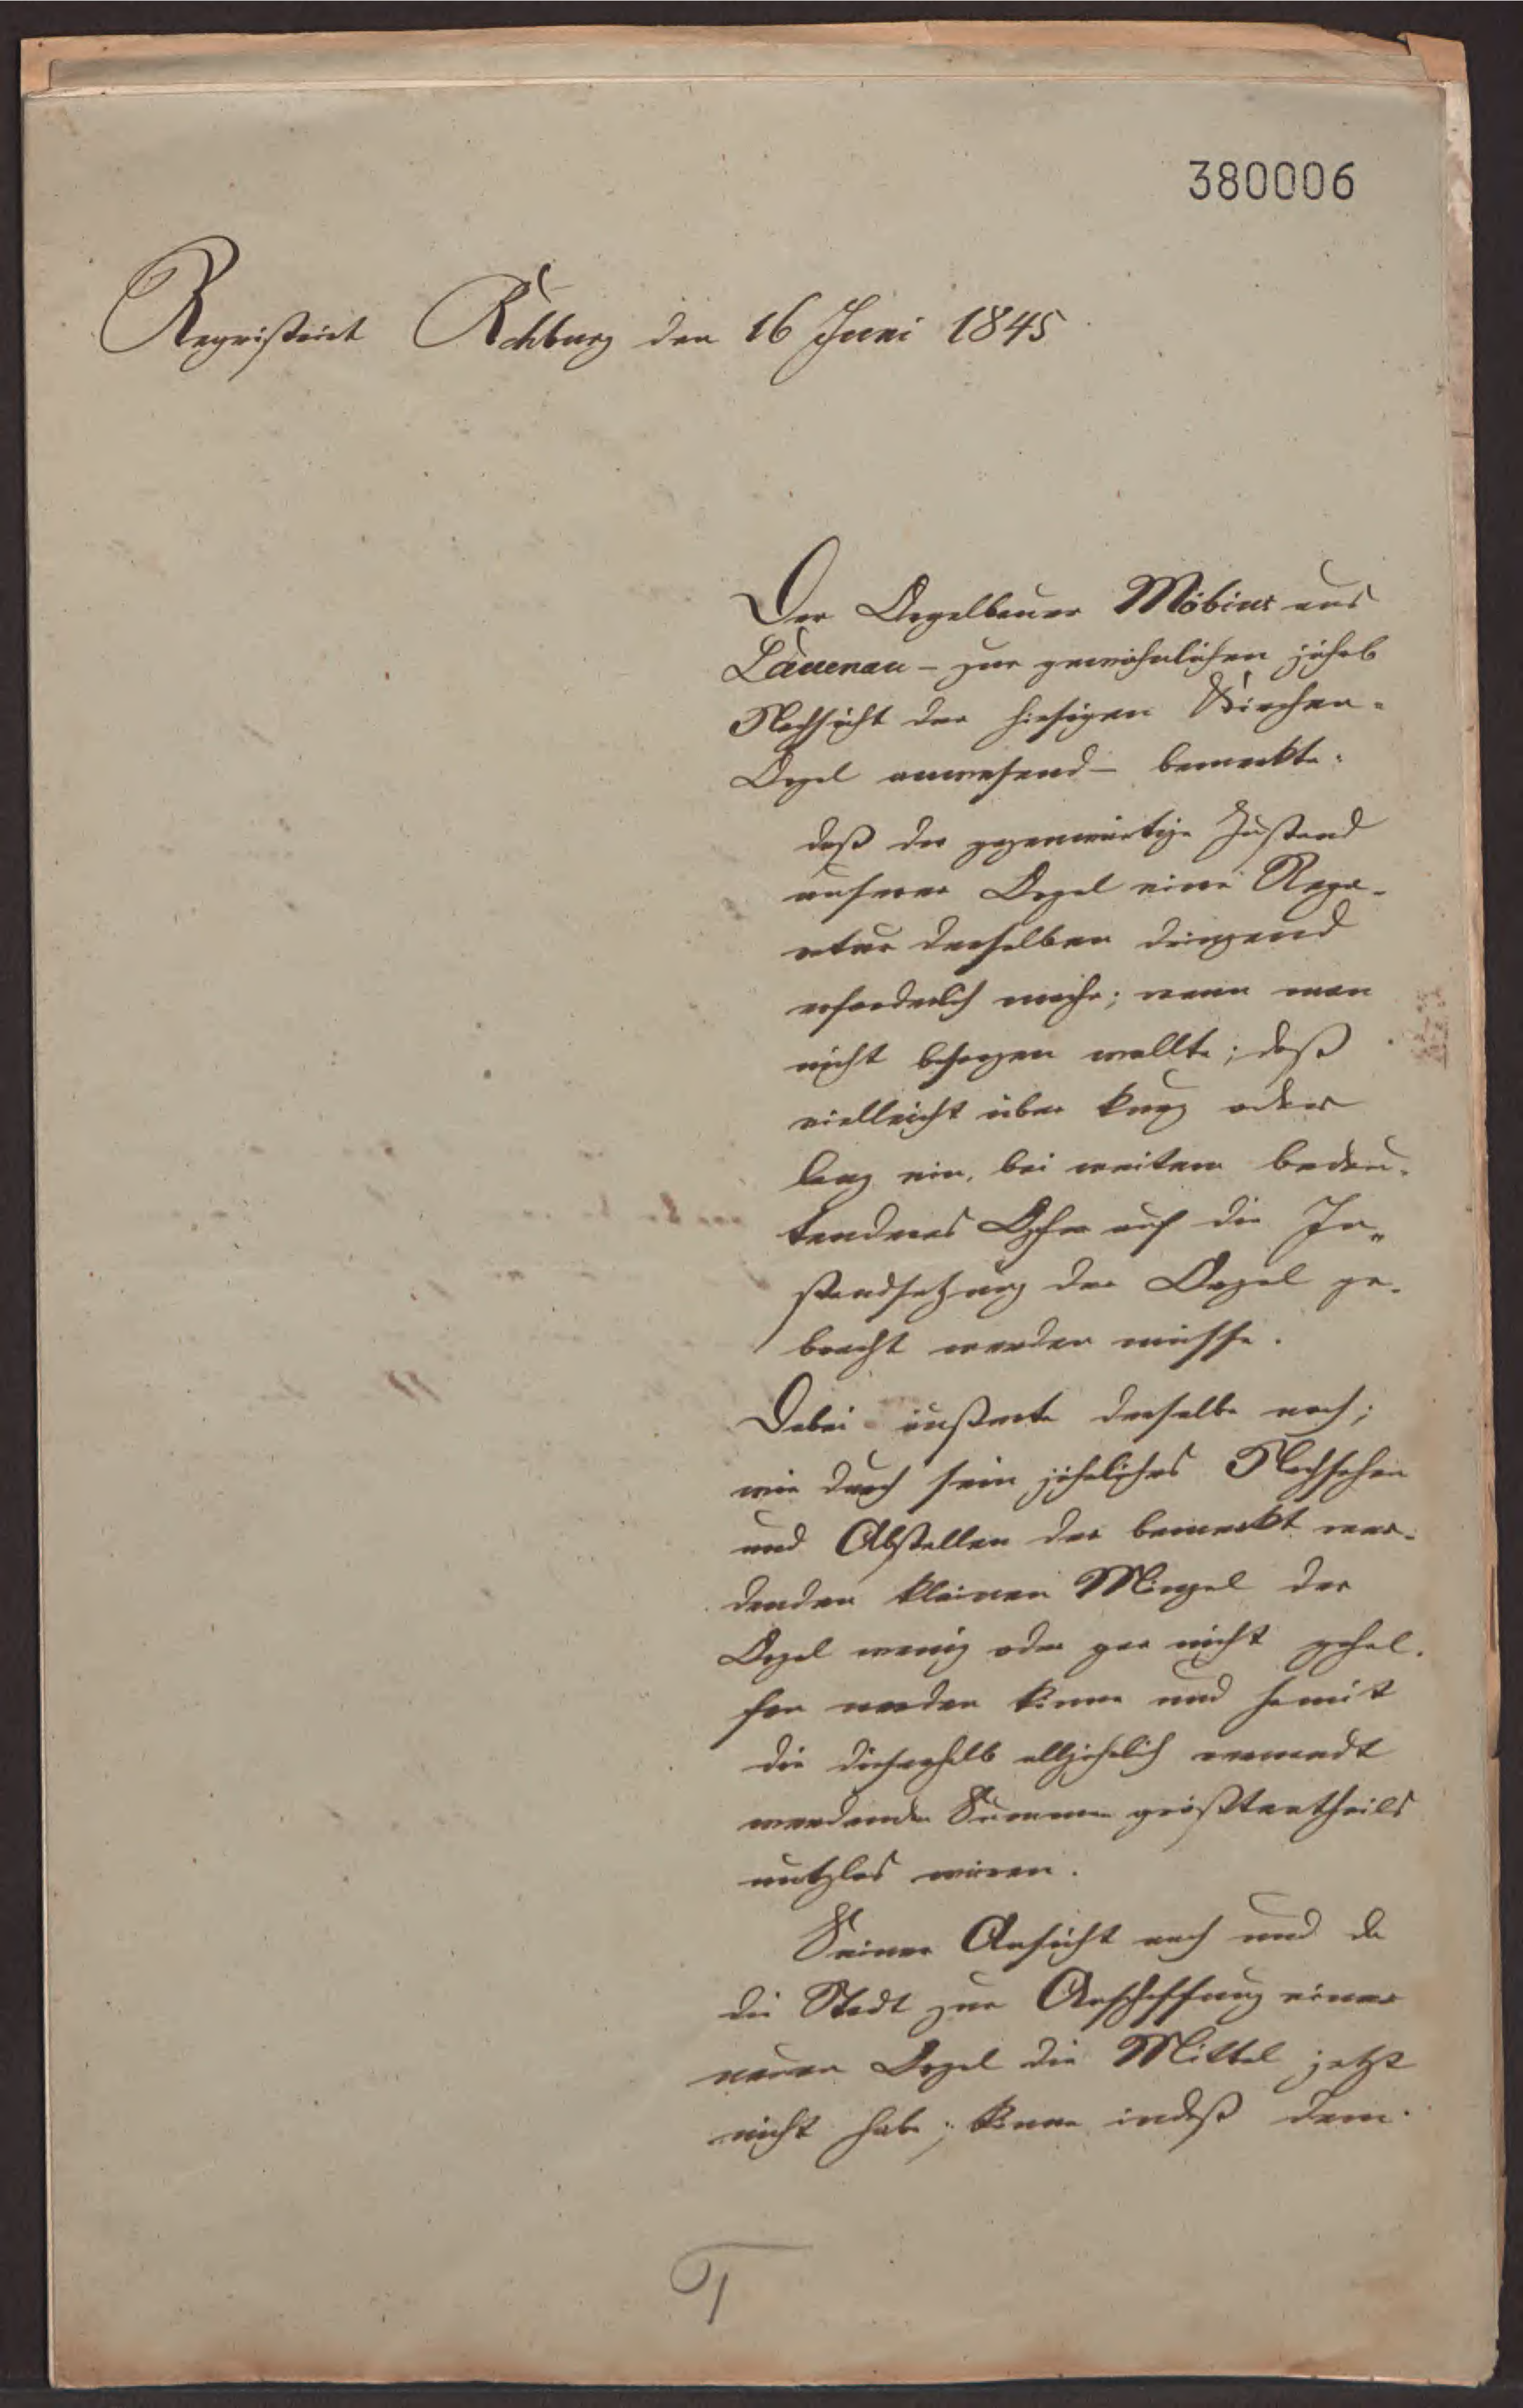 380006
Registrirt Rehburg den 16 Juni 1845
Der Orgelbauer Möbius aus
Lauenau – zur gewöhnlichen jährl
Nachsicht der hiesigen Kirchen-
Orgel anwesend – bemerkte:
daß der gegenwärtige Zustand
unserer Orgel eine Repa-
ratur derselben dringend
erforderlich mache; wenn man
nicht besorgen wollte; daß
vielleicht über kurz oder
lang ein, bei weitem bedeu-
tenderes Opfer auf die In-
standsetzung der Orgel ge-
bracht werden müsse.
Dabei äußerte derselbe noch;
wie durch sein jährliches Nachsehen
und Abstellen der bemerkt wer-
denden kleinen Mängel der
Orgel wenig oder gar nicht gehol-
fen werden könne und somit
die dieserhalb alljährlich verwandt
werdende Summen größtentheils
nutzlos wären.
Seiner Ansicht nach und da
die Stadt zur Anschaffung einer
neuen Orgel die Mittel jetzt
nicht habe; könne indeß dem